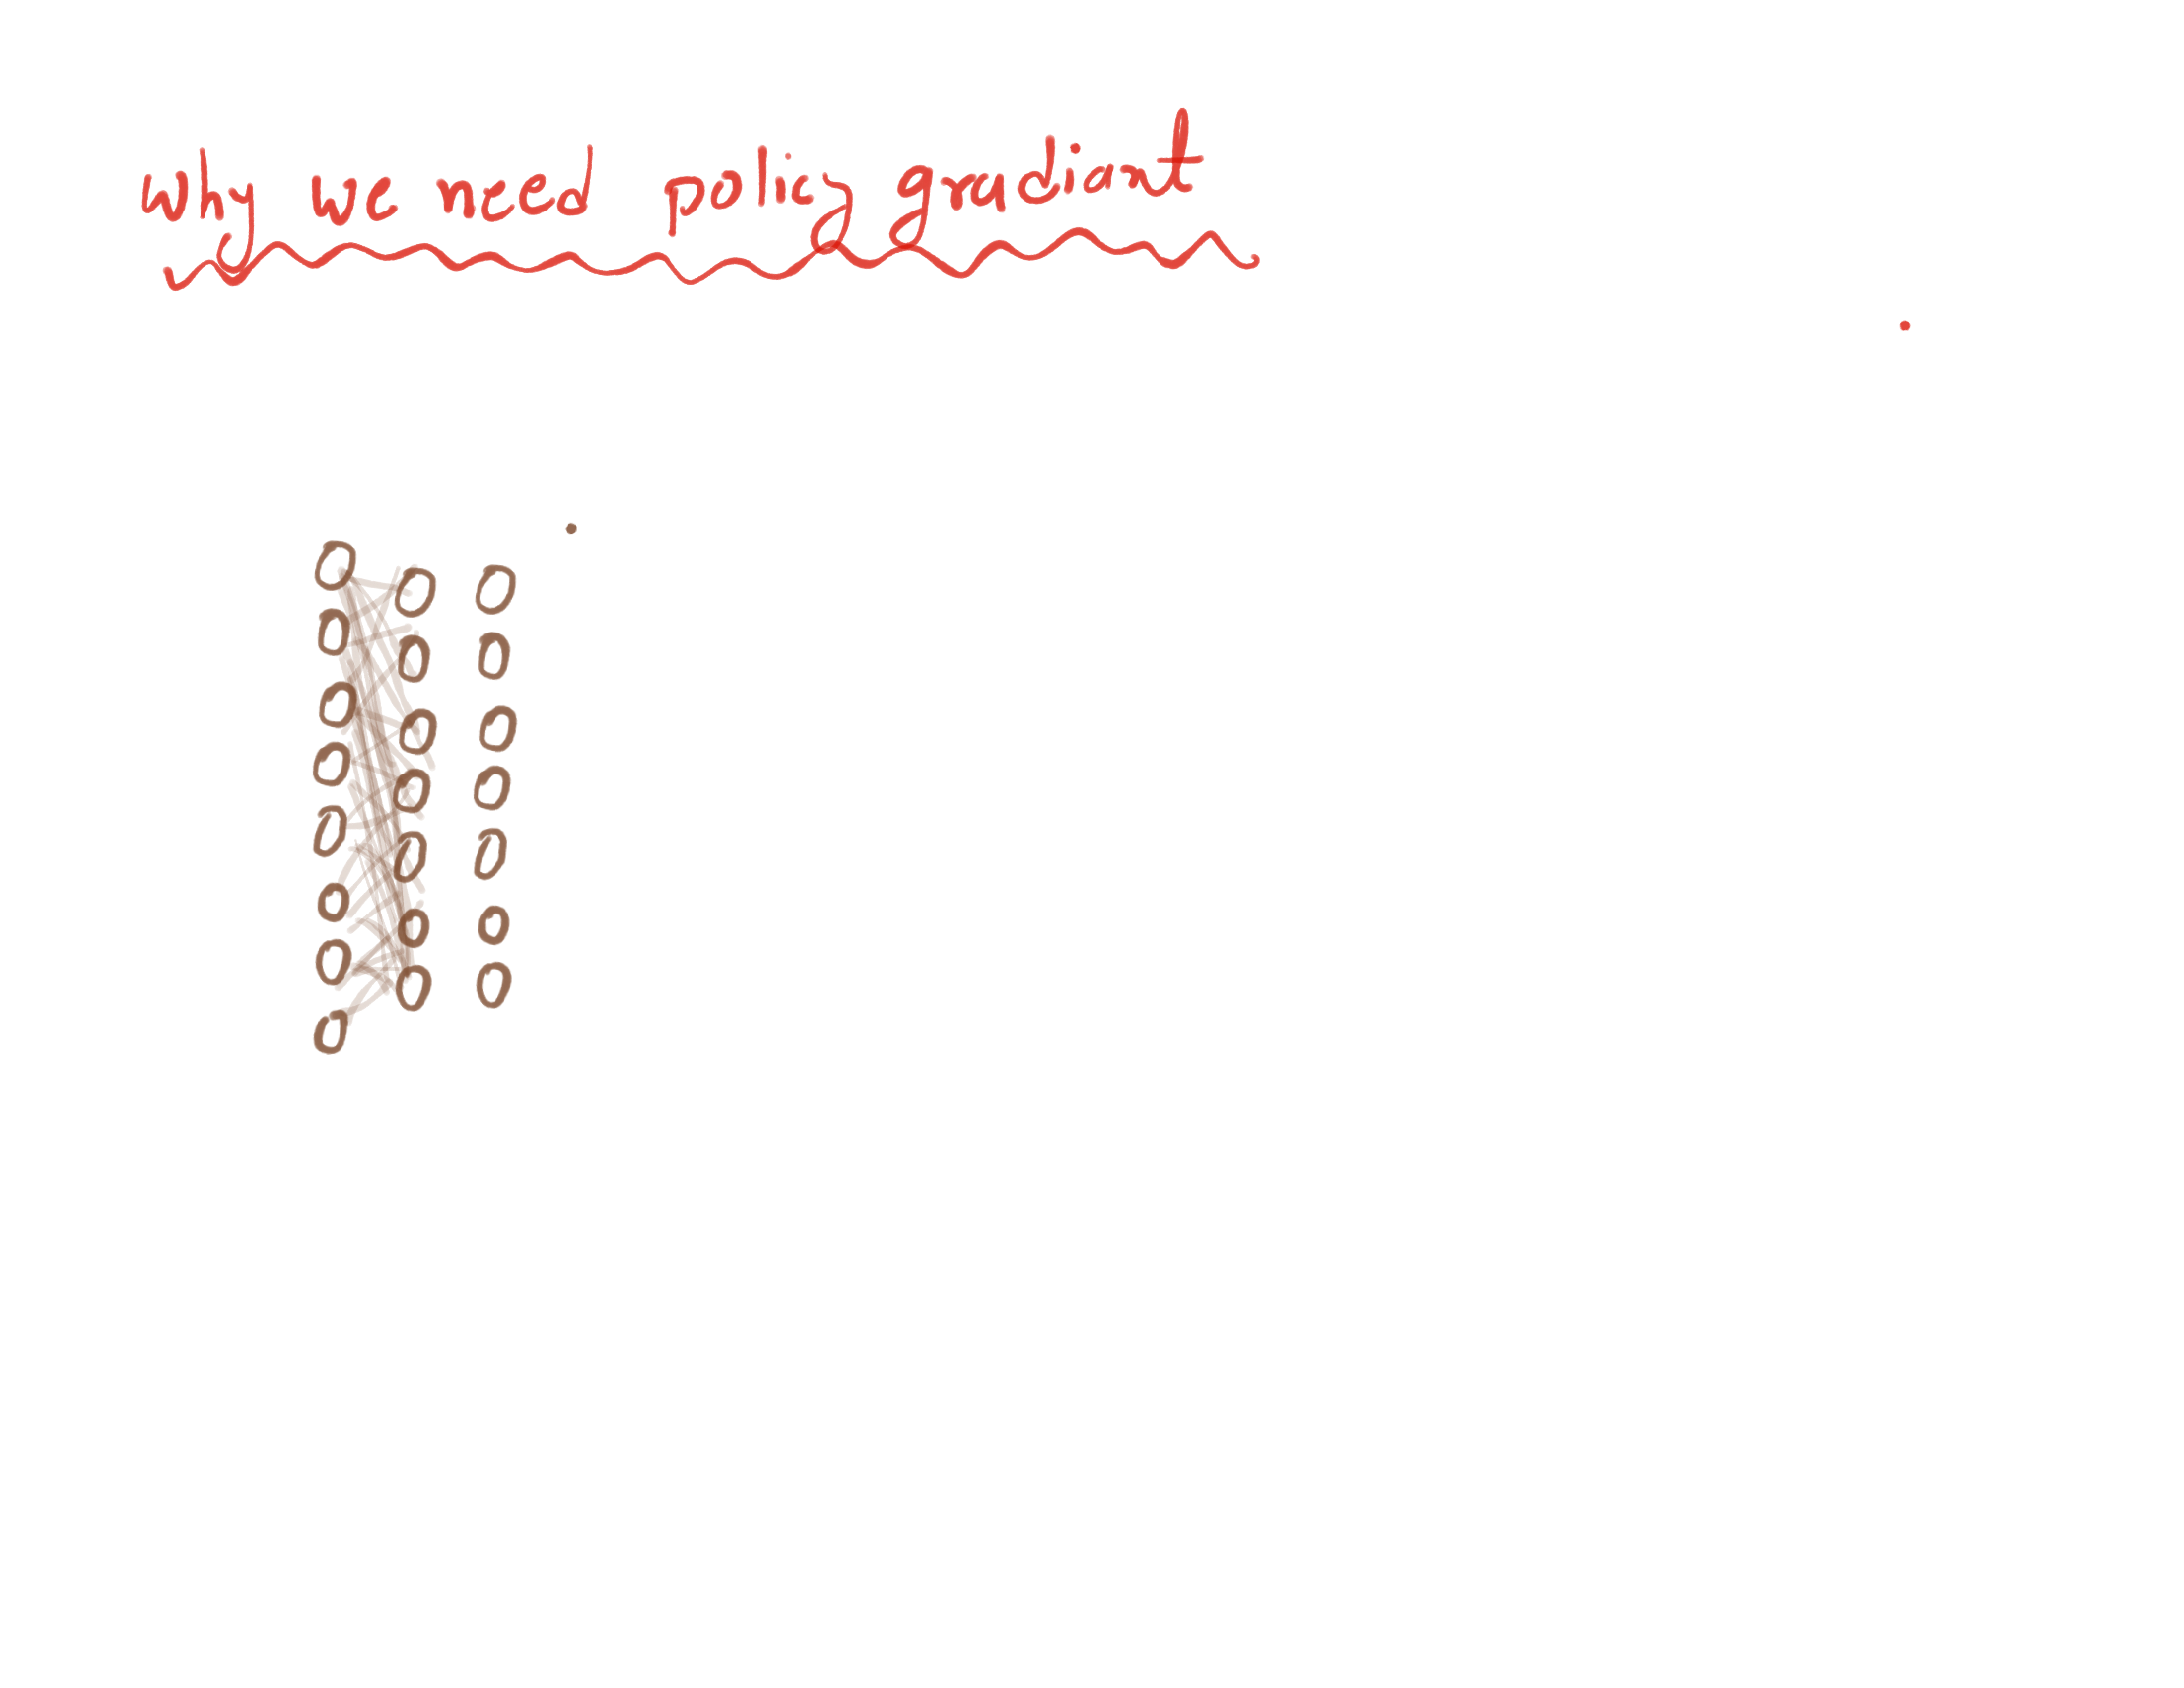 why we need policy gradient